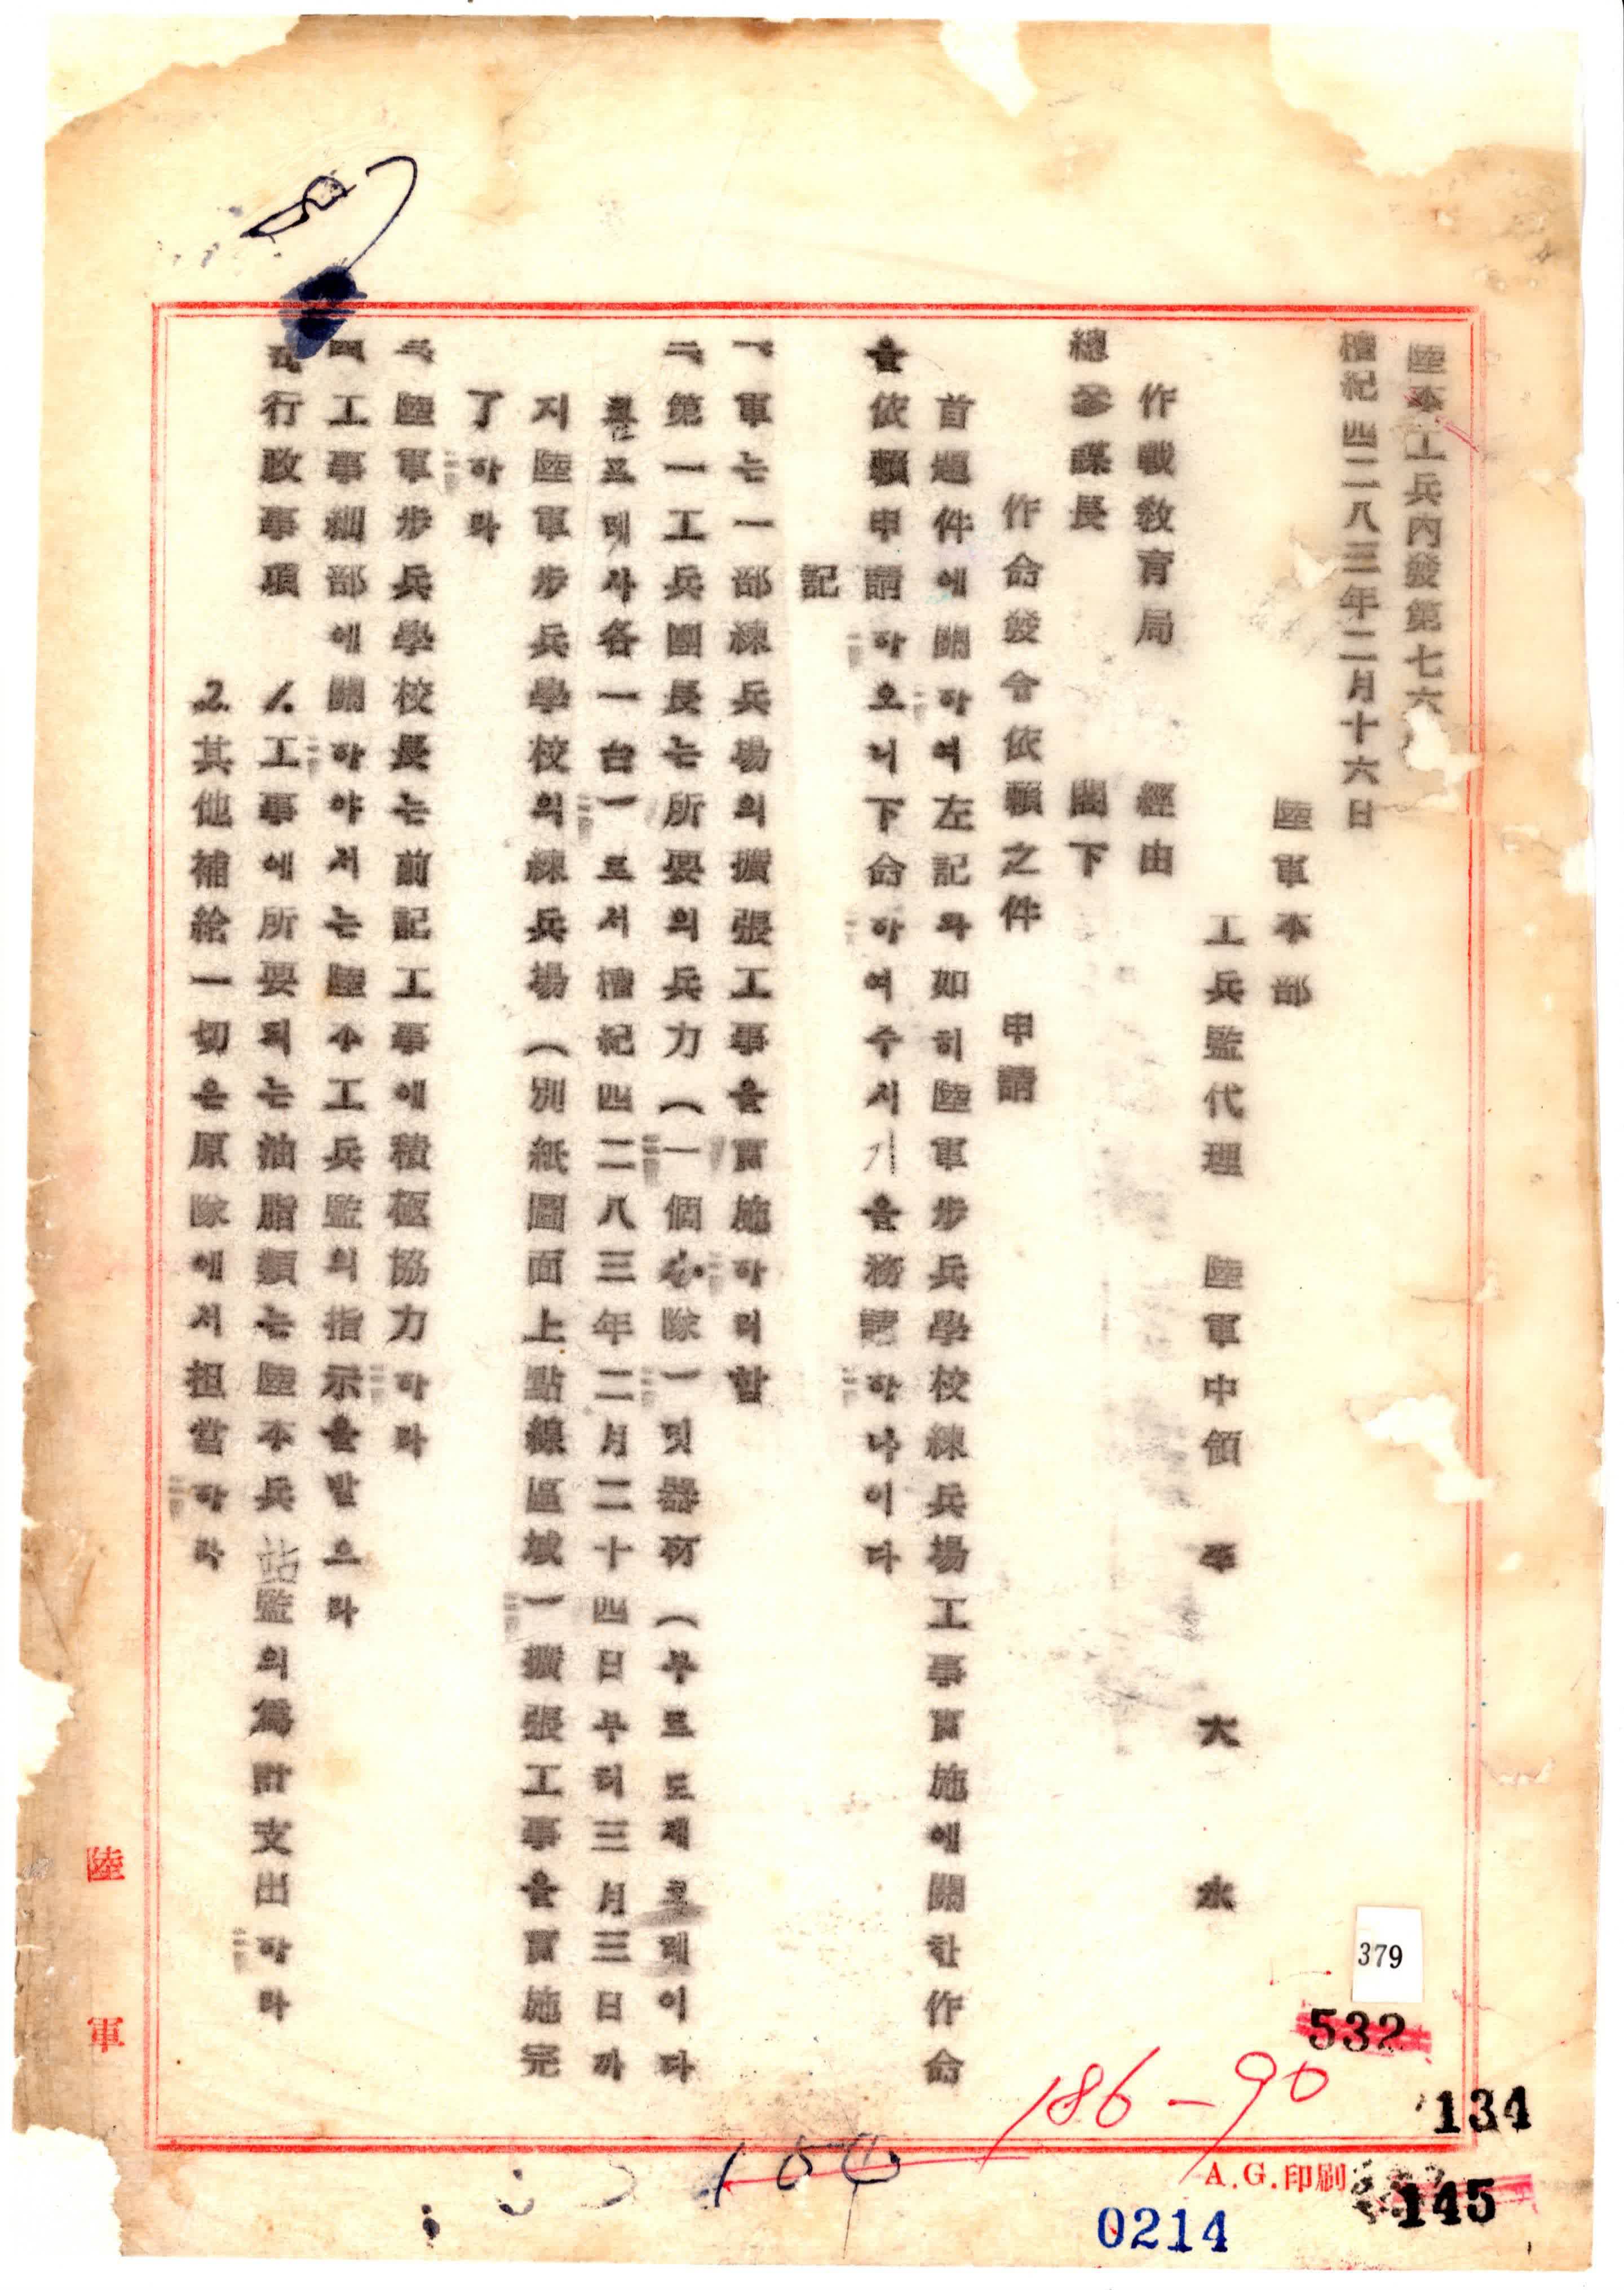 陸本工兵內發第七六
檀紀四二八三年二月十六日
陸軍本部
工兵監代理 陸軍中領 李 大 永
作戰敎育局 經由
總參謀長 閣下
作命發令依賴之件 申請
首題件에關하여左記와如히陸軍步兵學校練兵場工事實施에關한作命
을依賴申請하오니下命하여주시기을務請하나이다
記
一、軍는一部練兵場의擴張工事을實施하려함
二、第一工兵團長는所要의兵力(一個分隊)및器材(부르도제르 레이다
룬프레사各一台)로서檀紀四二八三年二月二十四日부터三月三日까
지陸軍步兵學校의練兵場(別紙圖面上點線區域)擴張工事을實施完
了하라
三、陸軍步兵學校長는前記工事에積極協力하라
四、工事細部에關하야서는陸本工兵監의指示을받으라
五、行政事項
1. 工事에所要되는油脂類는陸本兵站監의爲計支出하라
2. 其他補給一切은原隊에서担當하라
陸軍
379
532
134
186-90
A.G.印刷
145
0214